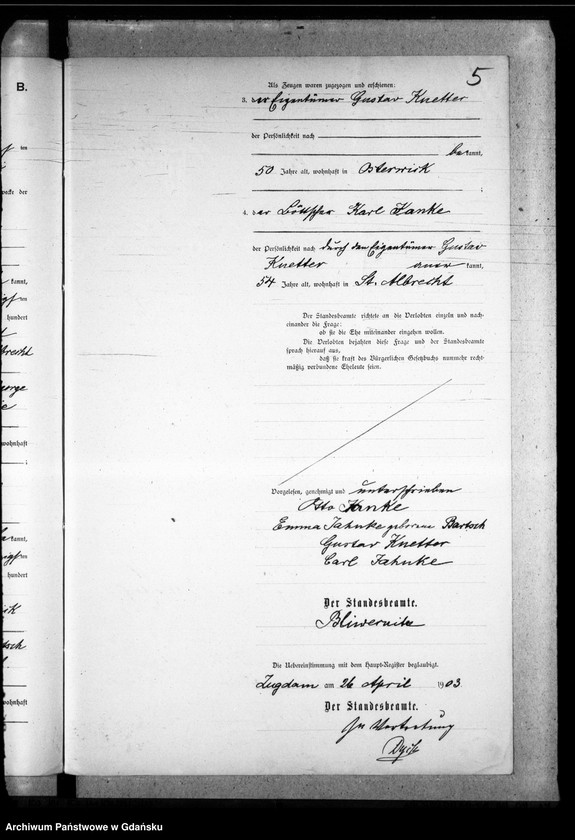 5
B.
Als Zeugen waren zugezogen und erschienen:
3. der Eigentümer Gustav Knetter
der Persönlichkeit nach
bekannt,
50 Jahre alt, wohnhaft in Osterwick
;
4. der Böttcher Karl Jahnke
der Persönlichkeit nach durch den Eigentümer Gustav
Knetter anerkannt,
54 Jahre alt, wohnhaft in St. Albrecht
Der Standesbeamte richtete an die Verlobten einzeln und nach-
einander die Frage:
ob sie die Ehe miteinander eingehen wollen.
Die Verlobten bejahten diese Frage und der Standesbeamte
sprach hierauf aus,
daß sie kraft des Bürgerlichen Gesetzbuchs nunmehr recht-
mäßig verbundene Eheleute seien.
Vorgelesen, genehmigt und unterschrieben
Otto Jahnke
Emma Jahnke geborene Bartsch
Gustav Knetter
Carl Jahnke
Der Standesbeamte.
Die Uebereinstimmung mit dem Haupt-Register beglaubigt.
Zugdam am 26 April 1903
Der Standesbeamte.
In Vertretung
Archiwum Państwowe w Gdańsku